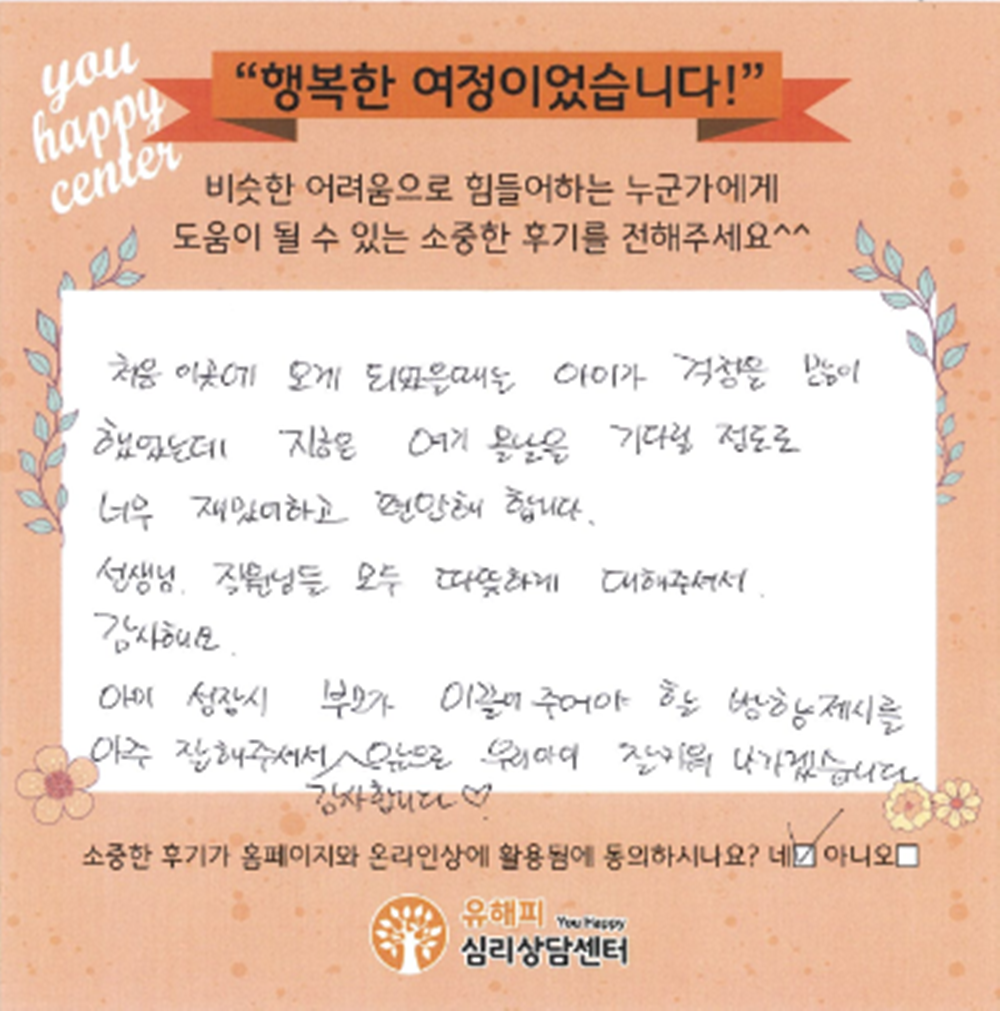 you
happy
center
“행복한 여정이었습니다!”
비슷한 어려움으로 힘들어하는 누군가에게
도움이 될 수 있는 소중한 후기를 전해주세요^^
처음 이곳에 오게 되었을때는 아이가 걱정을 많이
했었는데 지금은 여기 올날을 기다릴 정도로
너무 재밌어하고 편안해 합니다.
선생님. 직원님들 모두 따뜻하게 대해주셔서.
감사해요.
아이 성장시 부모가 이끌어 주어야 하는 방향제시를
아주 잘해주셔서 앞으로 우리아이 잘키워 나가겠습니다
감사합니다♡
소중한 후기가 홈페이지와 온라인상에 활용됨에 동의하시나요? 네☑ 아니오□
유해피 You Happy
심리상담센터